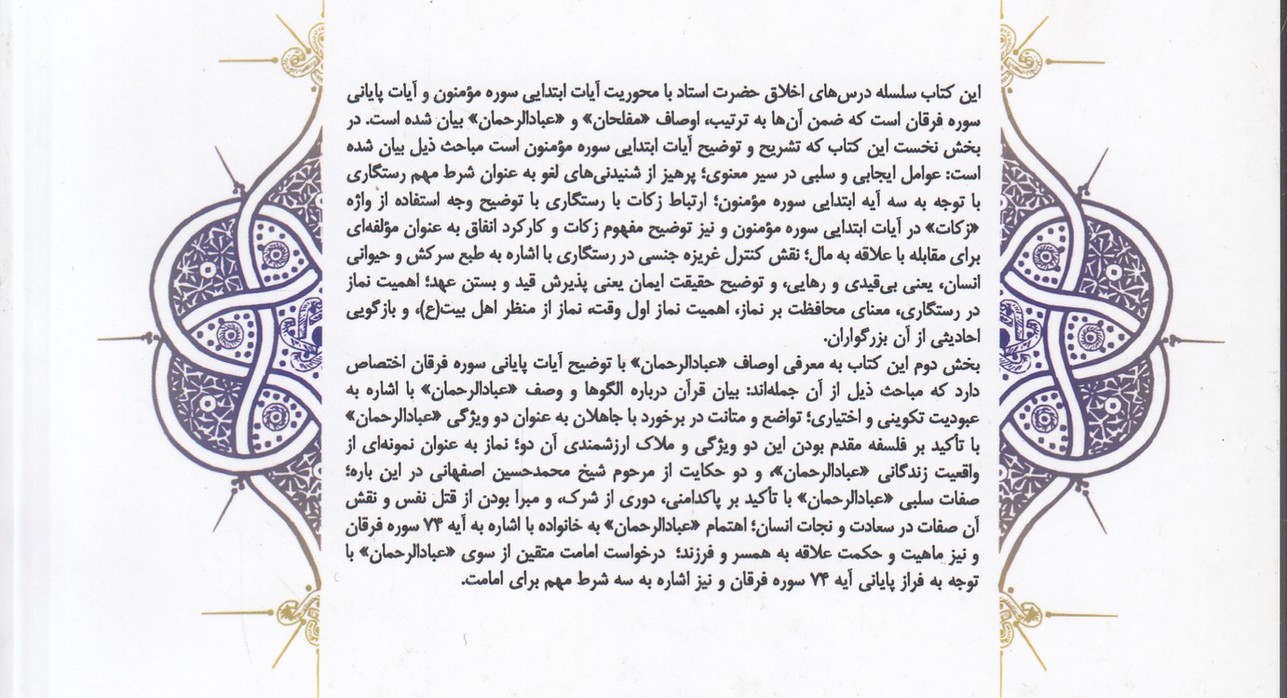 این کتاب سلسله درس‌های اخلاق حضرت استاد با محوریت آیات ابتدایی سوره مؤمنون و آیات پایانی
سوره فرقان است که ضمن آن‌ها به ترتیب، اوصاف «مفلحان» و «عبادالرحمان» بیان شده است. در
بخش نخست این کتاب که تشریح و توضیح آیات ابتدایی سوره مؤمنون است مباحث ذیل بیان شده
است: عوامل ایجابی و سلبی در سیر معنوی؛ پرهیز از شنیدنی‌های لغو به عنوان شرط مهم رستگاری
با توجه به سه آیه ابتدایی سوره مؤمنون؛ ارتباط زکات با رستگاری با توضیح وجه استفاده از واژه
«زکات» در آیات ابتدایی سوره مؤمنون و نیز توضیح مفهوم زکات و کارکرد انفاق به عنوان مؤلفه‌ای
برای مقابله با علاقه به مال؛ نقش کنترل غریزه جنسی در رستگاری با اشاره به طبع سرکش و حیوانی
انسان، یعنی بی‌قیدی و رهایی، و توضیح حقیقت ایمان یعنی پذیرش قید و بستن عهد؛ اهمیت نماز
در رستگاری، معنای محافظت بر نماز، اهمیت نماز اول وقت، نماز از منظر اهل بیت(ع)، و بازگویی
احادیثی از آن بزرگواران.
بخش دوم این کتاب به معرفی اوصاف «عبادالرحمان» با توضیح آیات پایانی سوره فرقان اختصاص
دارد که مباحث ذیل از آن جمله‌اند: بیان قرآن درباره الگوها و وصف «عبادالرحمان» با اشاره به
عبودیت تکوینی و اختیاری؛ تواضع و متانت در برخورد با جاهلان به عنوان دو ویژگی «عبادالرحمان»
با تأکید بر فلسفه مقدم بودن این دو ویژگی و ملاک ارزشمندی آن دو؛ نماز به عنوان نمونه‌ای از
واقعیت زندگانی «عبادالرحمان»، و دو حکایت از مرحوم شیخ محمدحسین اصفهانی در این باره؛
صفات سلبی «عبادالرحمان» با تأکید بر پاکدامنی، دوری از شرک، و مبرا بودن از قتل نفس و نقش
آن صفات در سعادت و نجات انسان؛ اهتمام «عبادالرحمان» به خانواده با اشاره به آیه ۷۴ سوره فرقان
و نیز ماهیت و حکمت علاقه به همسر و فرزند؛ درخواست امامت متقین از سوی «عبادالرحمان» با
توجه به فراز پایانی آیه ۷۴ سوره فرقان و نیز اشاره به سه شرط مهم برای امامت.